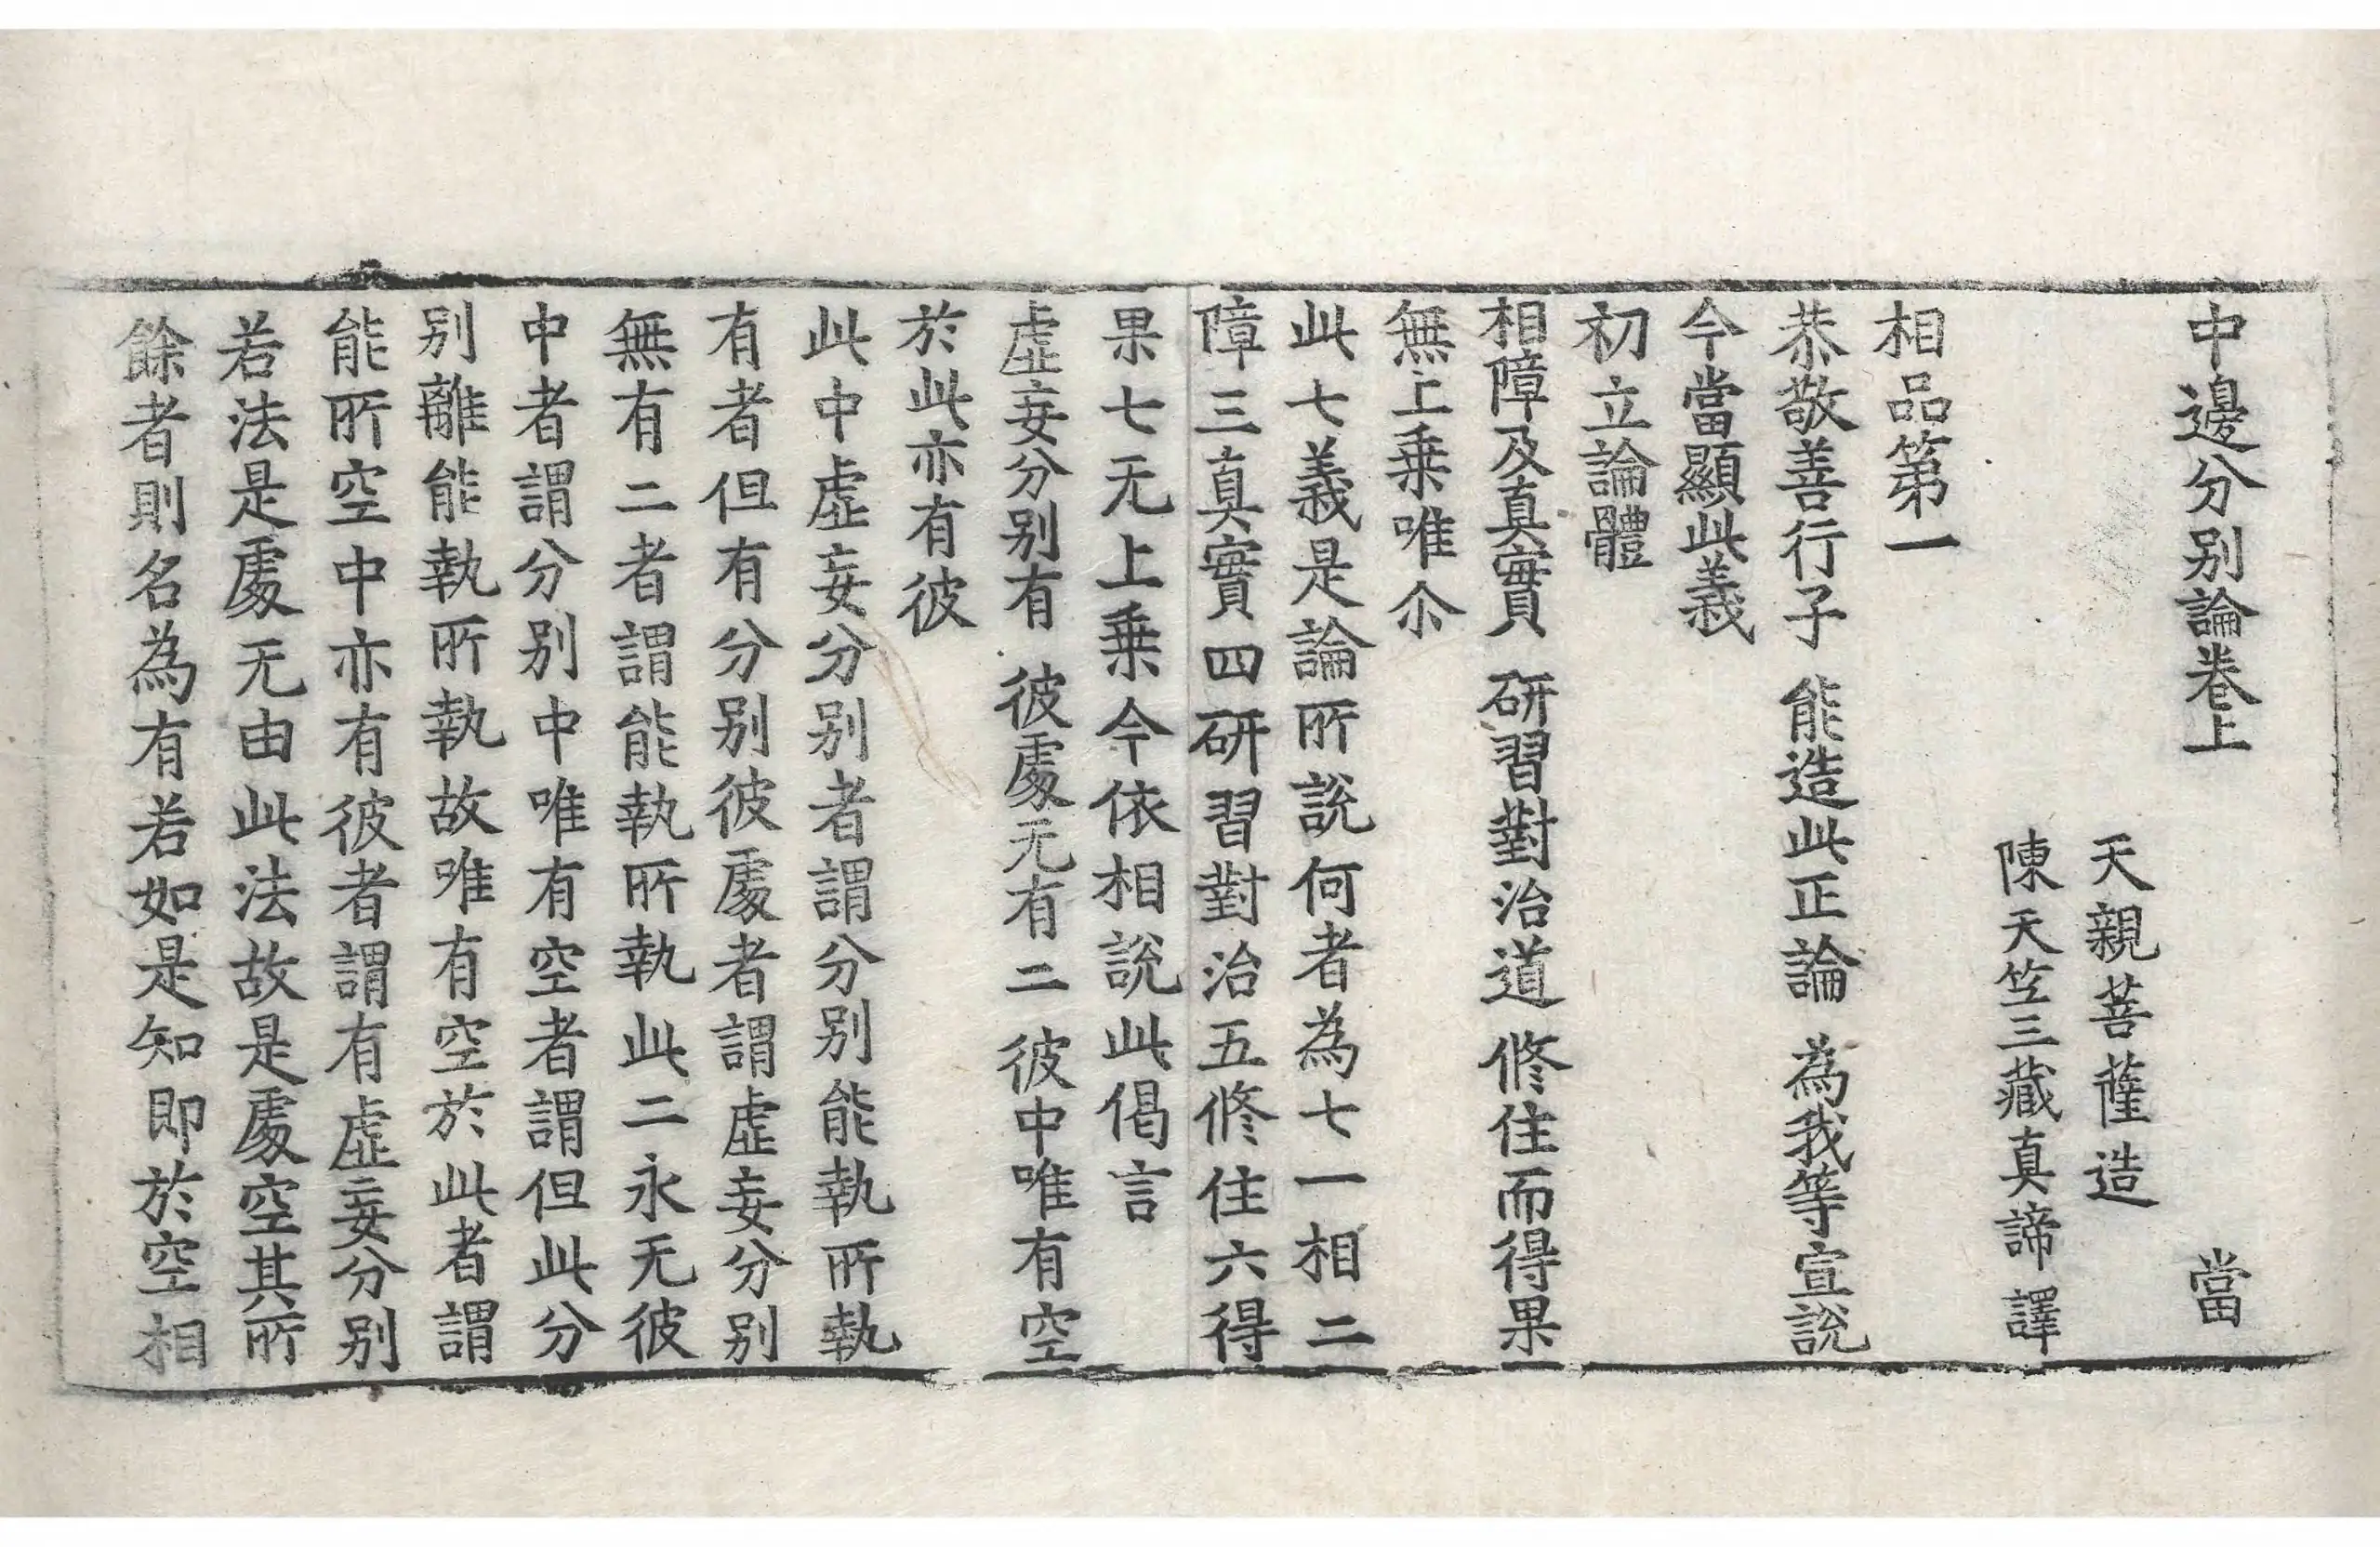 中邊分別論卷上　當
天親菩薩造
陳天竺三藏真諦譯
相品第一
恭敬善行子　能造此正論　為我等宣說
今當顯此義
初立論體
相障及真實　研習對治道　修住而得果
無上乗唯尒
此七義是論所說何者為七一相二
障三真實四研習對治五修住六得
果七无上乗今依相說此偈言
虛妄分别有　彼處无有二　彼中唯有空
於此亦有彼
此中虛妄分别者謂分别能執所執
有者但有分别彼處者謂虛妄分别
無有二者謂能執所執此二永无彼
中者謂分别中唯有空者謂但此分
别離能執所執故唯有空於此者謂
能所空中亦有彼者謂有虛妄分别
若法是處无由此法故是處空其所
餘者則名為有若如是知即於空相